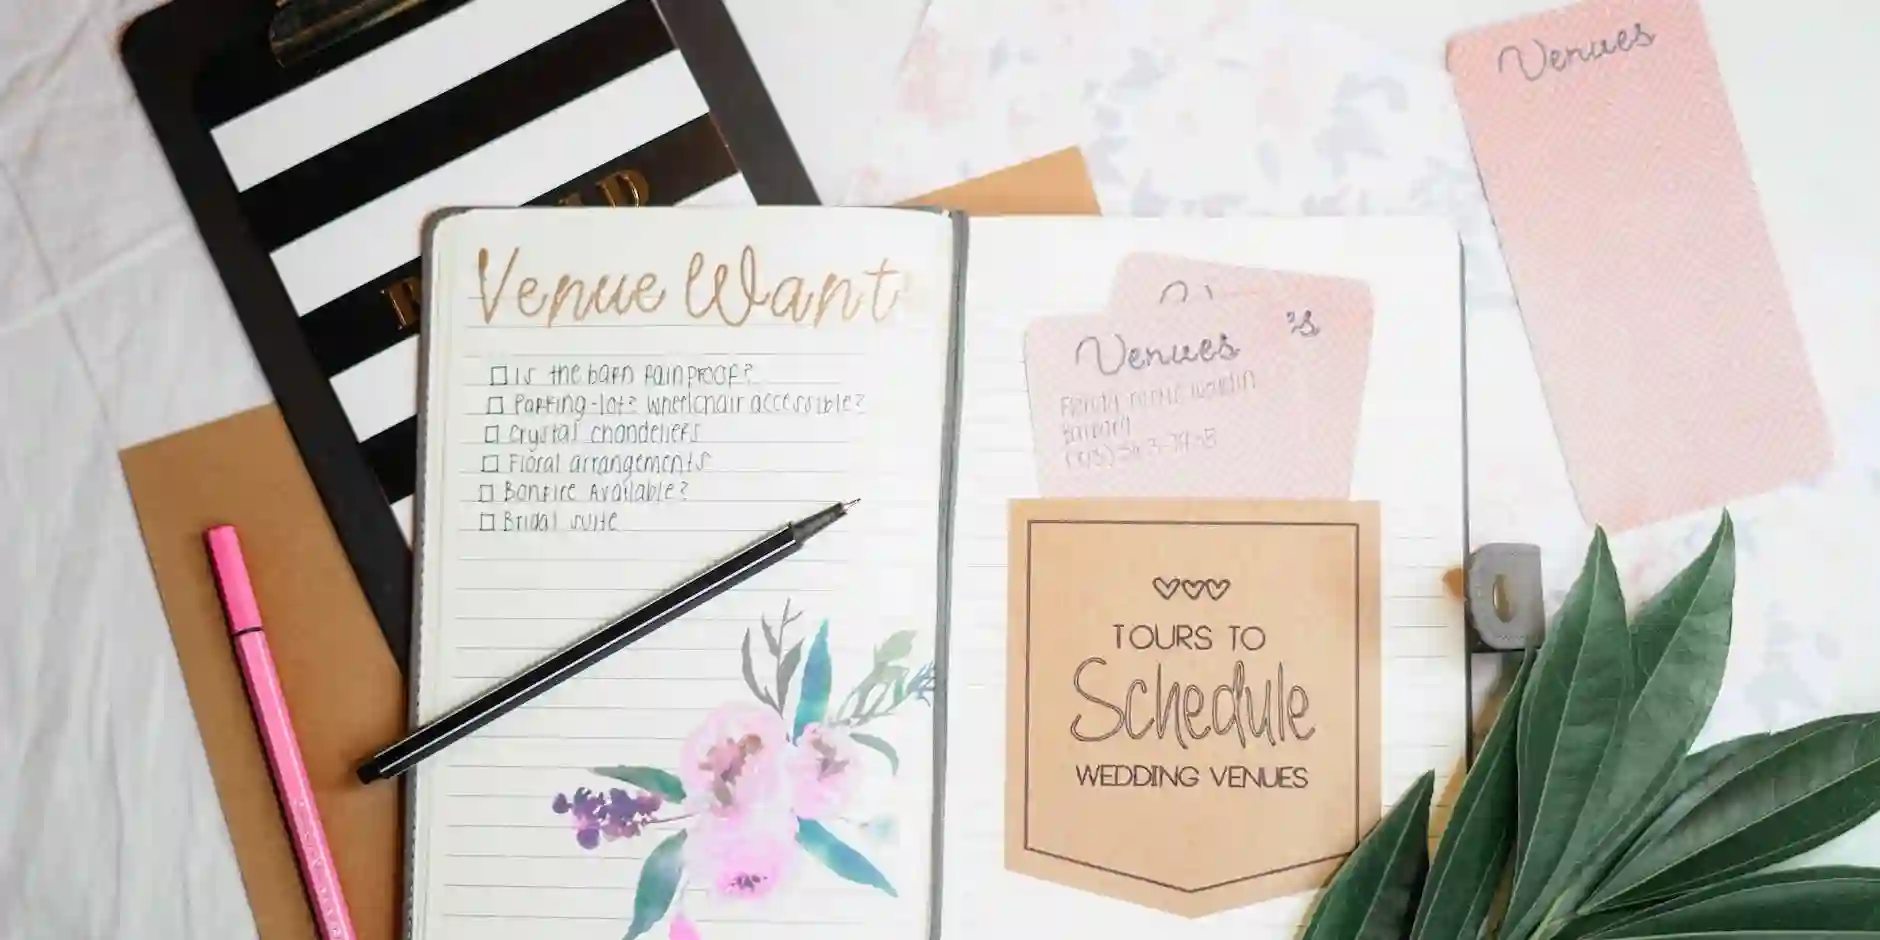 Venues
Venue Want
Is the barn rainproof?
Parking-lot? wheelchair accessible?
Crystal chandeliers
Floral arrangements
Bonfire Available?
Bridal suite
Venues
Barbara
TOURS TO
Schedule
WEDDING VENUES